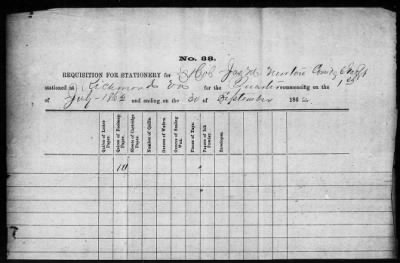 No. 38.
REQUISITION FOR STATIONERY for Col Jas M
stationed at Richmond Va for the Quarter commencing on the 1st
of July 1862 and ending on the 30 of September 186
Quires of Letter Paper.
Quires of Foolscap Paper.
Sheets of Cartridge Paper.
Number of Quills.
Ounces of Wafers.
Ounces of Sealing Wax.
Pieces of Tape.
Papers of Ink Powder.
Envelopes.
10
7